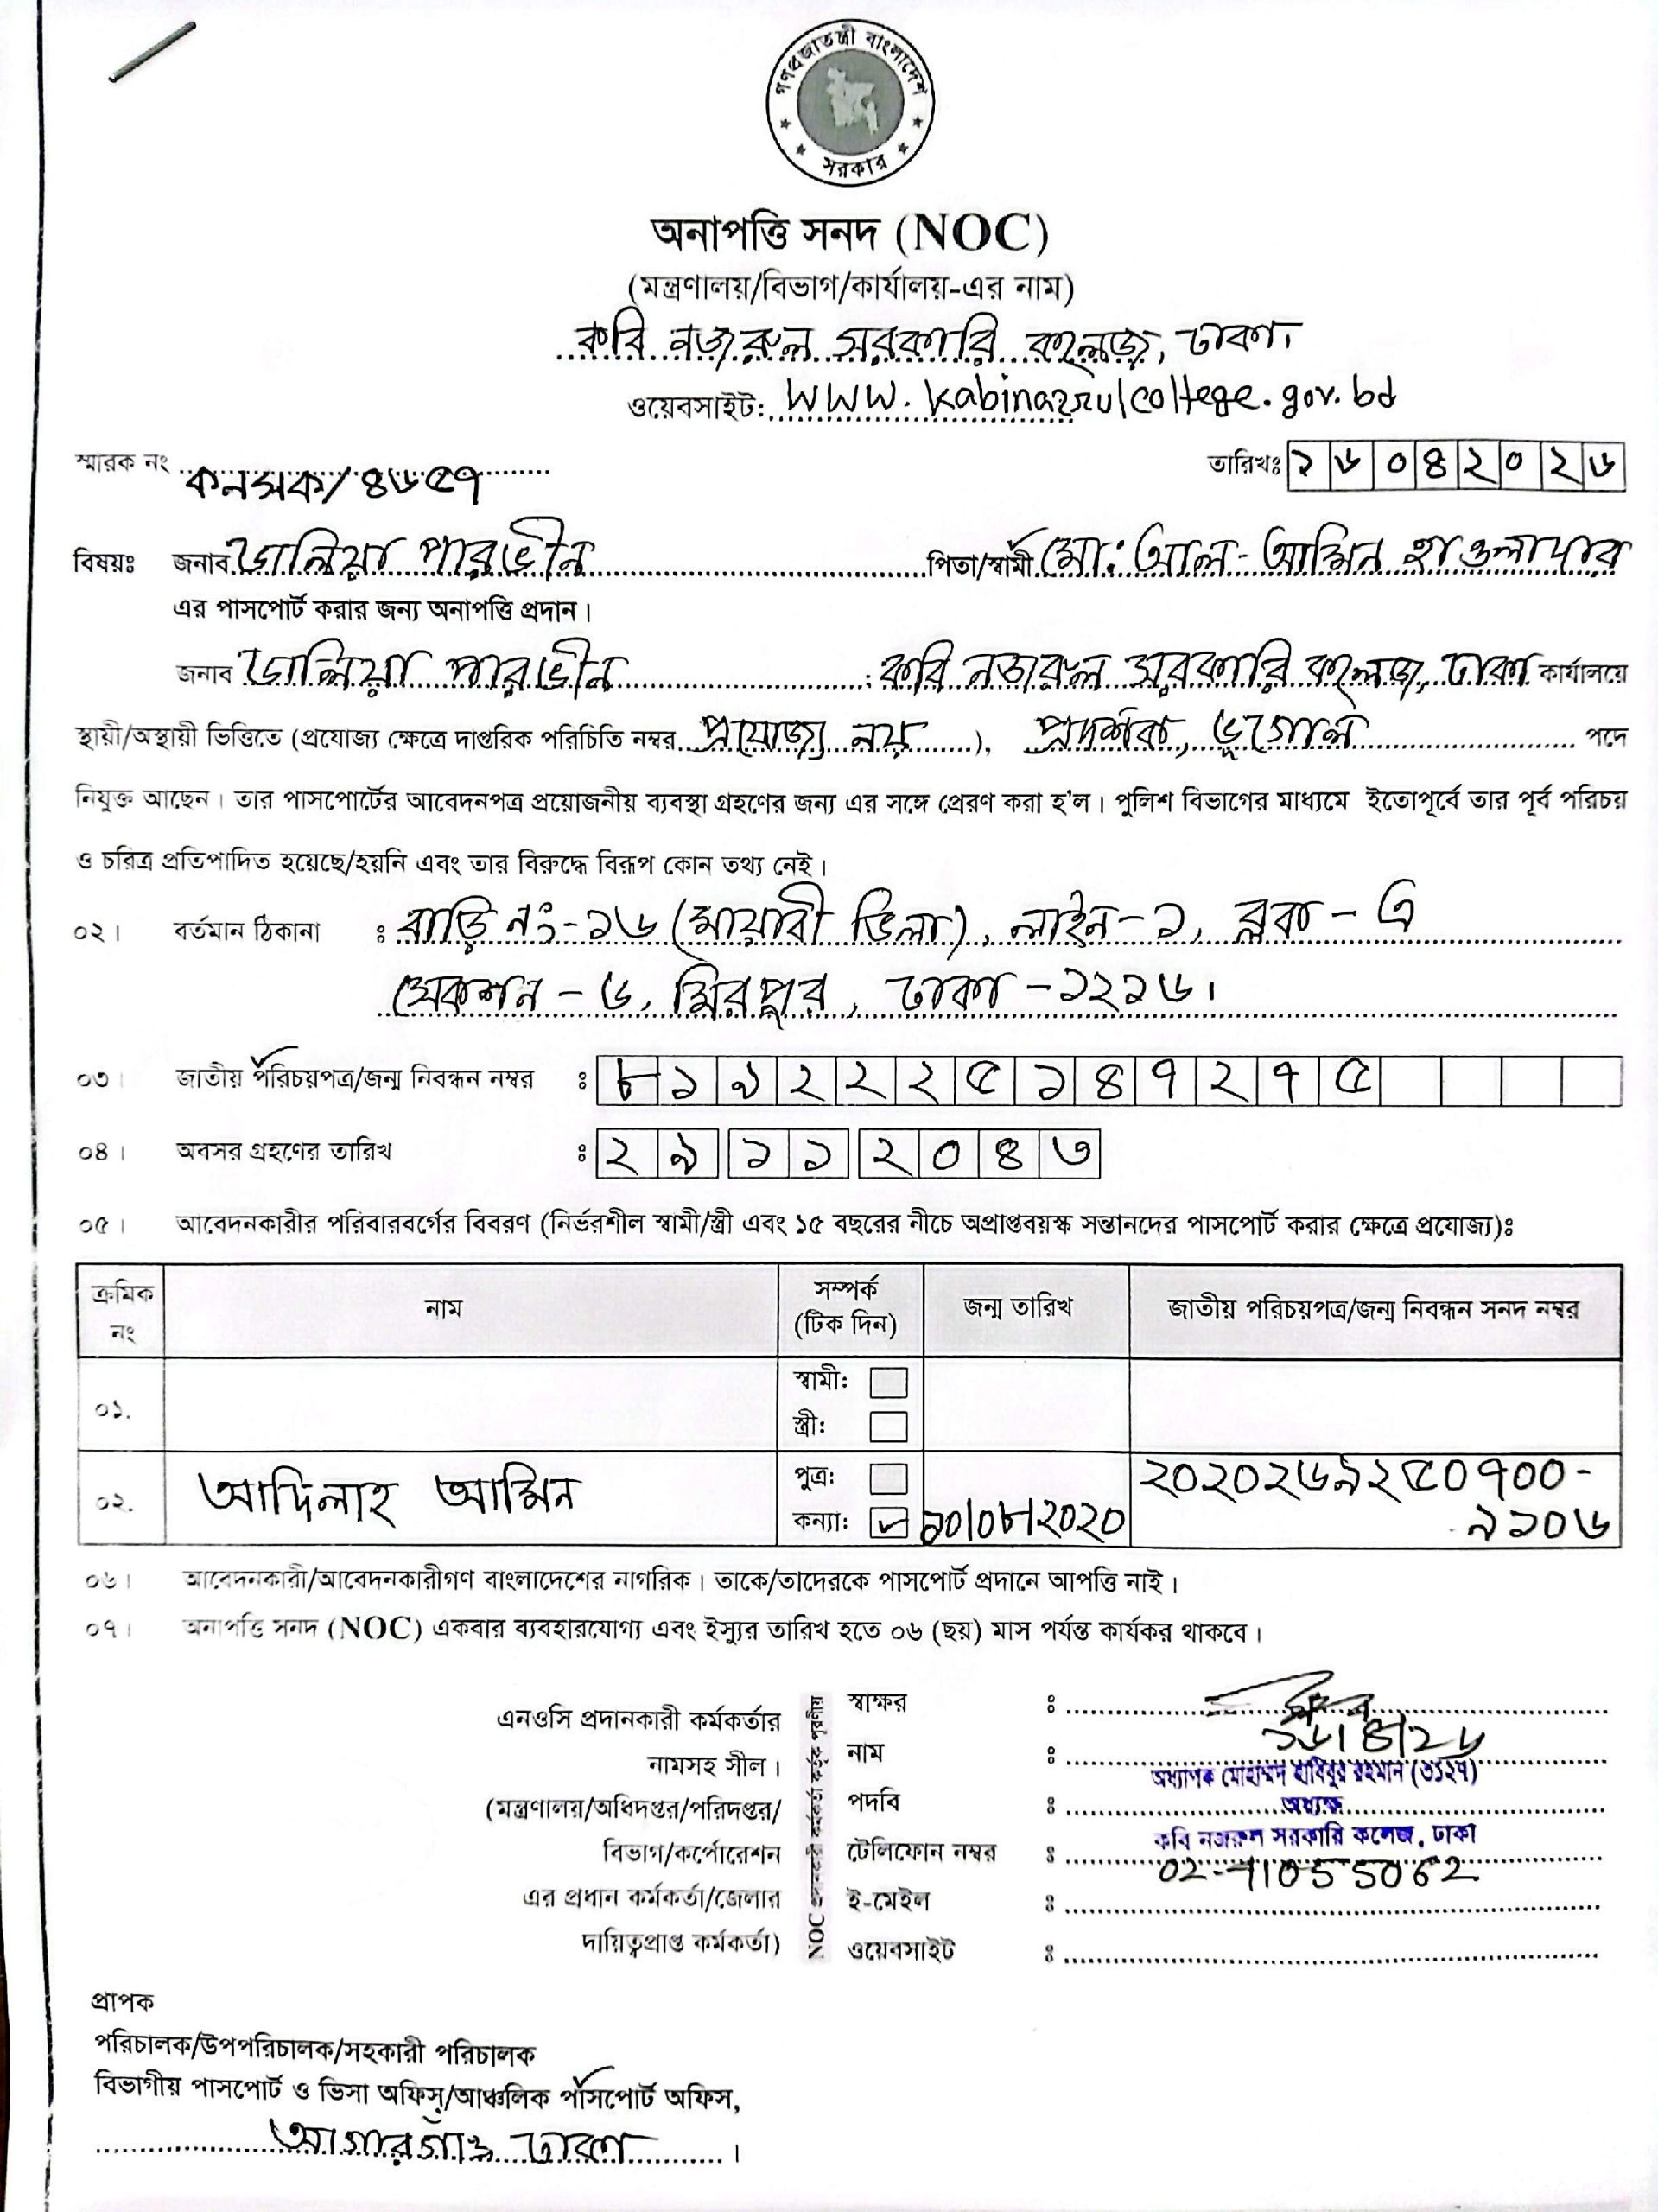 গণপ্রজাতন্ত্রী বাংলাদেশ
সরকার
অনাপত্তি সনদ (NOC)
(মন্ত্রণালয়/বিভাগ/কার্যালয়-এর নাম)
কবি নজরুল সরকারি কলেজ, ঢাকা।
ওয়েবসাইট: WWW.kabinazrulcollege.gov.bd
স্মারক নং কনসক/৪৬৫৭
তারিখঃ ১৬০৪২০২৬
বিষয়ঃ জনাব ডালিয়া পারভীন পিতা/স্বামী মো: আল-আমিন হাওলাদার
এর পাসপোর্ট করার জন্য অনাপত্তি প্রদান।
জনাব ডালিয়া পারভীন : কবি নজরুল সরকারি কলেজ, ঢাকা কার্যালয়ে
স্থায়ী/অস্থায়ী ভিত্তিতে (প্রযোজ্য ক্ষেত্রে দাপ্তরিক পরিচিতি নম্বর প্রযোজ্য নয়), প্রদর্শক, ভূগোল পদে
নিযুক্ত আছেন। তার পাসপোর্টের আবেদনপত্র প্রয়োজনীয় ব্যবস্থা গ্রহণের জন্য এর সঙ্গে প্রেরণ করা হ'ল। পুলিশ বিভাগের মাধ্যমে ইতোপূর্বে তার পূর্ব পরিচয়
ও চরিত্র প্রতিপাদিত হয়েছে/হয়নি এবং তার বিরুদ্ধে বিরূপ কোন তথ্য নেই।
০২। বর্তমান ঠিকানা : বাড়ি নং-১৬ (মায়াবী ভিলা), লাইন-১, ব্লক-এ
সেকশন-৬, মিরপুর, ঢাকা-১২১৬।
০৩। জাতীয় পরিচয়পত্র/জন্ম নিবন্ধন নম্বর : ৮১৯২২২৫১৪৭২৭৫
০৪। অবসর গ্রহণের তারিখ : ২৯১১২০৪৩
০৫। আবেদনকারীর পরিবারবর্গের বিবরণ (নির্ভরশীল স্বামী/স্ত্রী এবং ১৫ বছরের নীচে অপ্রাপ্তবয়স্ক সন্তানদের পাসপোর্ট করার ক্ষেত্রে প্রযোজ্য)ঃ
ক্রমিক নং নাম সম্পর্ক (টিক দিন) জন্ম তারিখ জাতীয় পরিচয়পত্র/জন্ম নিবন্ধন সনদ নম্বর
০১. স্বামী:
স্ত্রী:
০২. আদিলাহ আমিন পুত্র: ২০২০২৬৯২৫০৭০০-
কন্যা: ১০/০৮/২০২০ ৯১০৬
০৬। আবেদনকারী/আবেদনকারীগণ বাংলাদেশের নাগরিক। তাকে/তাদেরকে পাসপোর্ট প্রদানে আপত্তি নাই।
০৭। অনাপত্তি সনদ (NOC) একবার ব্যবহারযোগ্য এবং ইস্যুর তারিখ হতে ০৬ (ছয়) মাস পর্যন্ত কার্যকর থাকবে।
এনওসি প্রদানকারী কর্মকর্তার
নামসহ সীল।
(মন্ত্রণালয়/অধিদপ্তর/পরিদপ্তর/
বিভাগ/কর্পোরেশন
এর প্রধান কর্মকর্তা/জেলার
দায়িত্বপ্রাপ্ত কর্মকর্তা)
NOC প্রদানকারী কর্মকর্তা কর্তৃক পূরণীয়
স্বাক্ষর :
১৬/৪/২৬
নাম : অধ্যাপক মোহাম্মদ হাবিবুর রহমান (৩১২৭)
পদবি : অধ্যক্ষ
কবি নজরুল সরকারি কলেজ, ঢাকা
টেলিফোন নম্বর : 02-41055062
ই-মেইল :
ওয়েবসাইট :
প্রাপক
পরিচালক/উপপরিচালক/সহকারী পরিচালক
বিভাগীয় পাসপোর্ট ও ভিসা অফিস/আঞ্চলিক পাসপোর্ট অফিস,
আগারগাঁও ঢাকা।